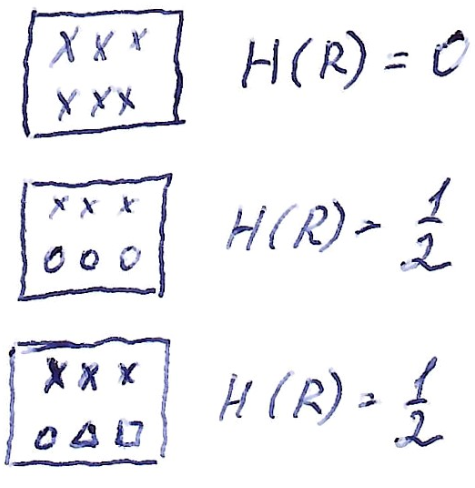 X X X
X X X
H(R) = 0
X X X
O O O
H(R) = 1/2
X X X
O △ □
H(R) = 1/2